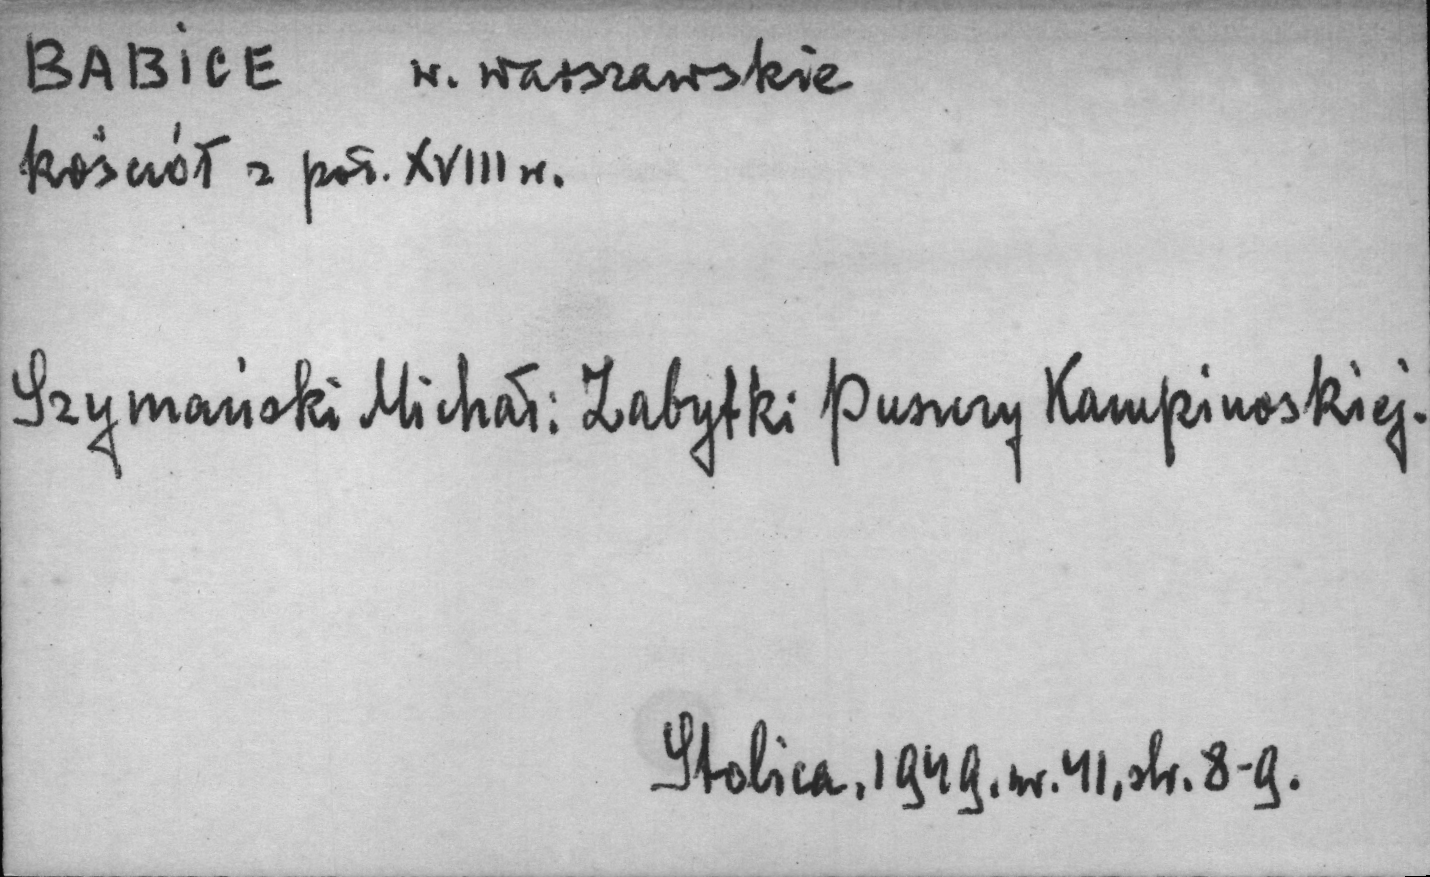 BABICE w. warszawskie
kościół z poł. XVIII w.
Szymański Michał: Zabytki Puszczy Kampinoskiej.
Stolica, 1949, nr. 41, str. 8-9.